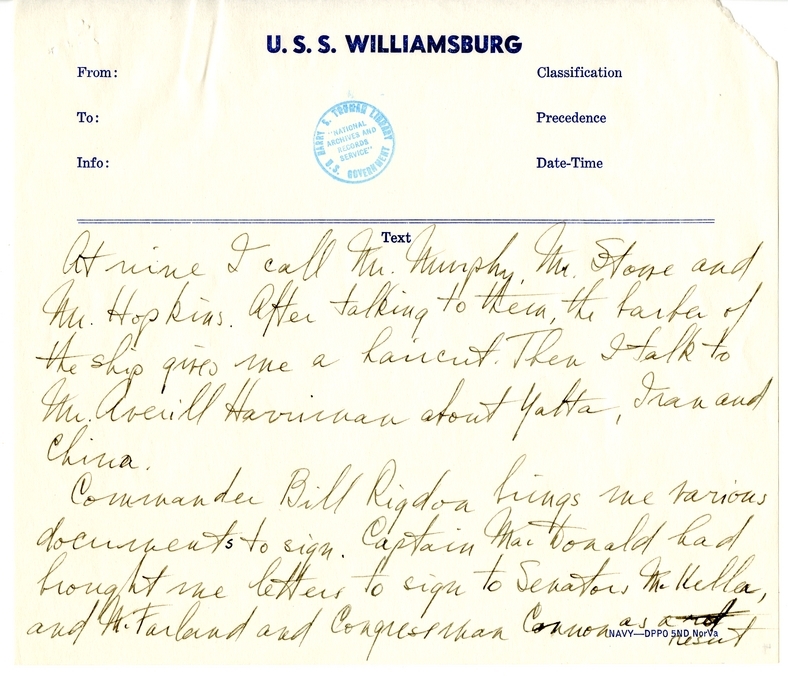 U. S. S. WILLIAMSBURG
From:
Classification
To:
Precedence
Info:
Date-Time
HARRY S. TRUMAN LIBRARY
"NATIONAL
ARCHIVES AND
RECORDS
SERVICE"
U.S. GOVERNMENT
Text
At nine I call Mr. Murphy, Mr. Stowe and
Mr. Hopkins. After talking to them, the barber of
the ship gives me a haircut. Then I talk to
Mr. Averill Harriman about Yalta, Iran and
China.
Commander Bill Rigdon brings me various
documents to sign. Captain MacDonald had
brought me letters to sign to Senators McKellar,
and McFarland and Congressman Cannon as a
result
NAVY—DPPO 5ND NorVa